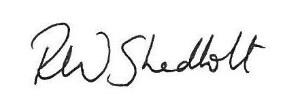 RW Shedholt